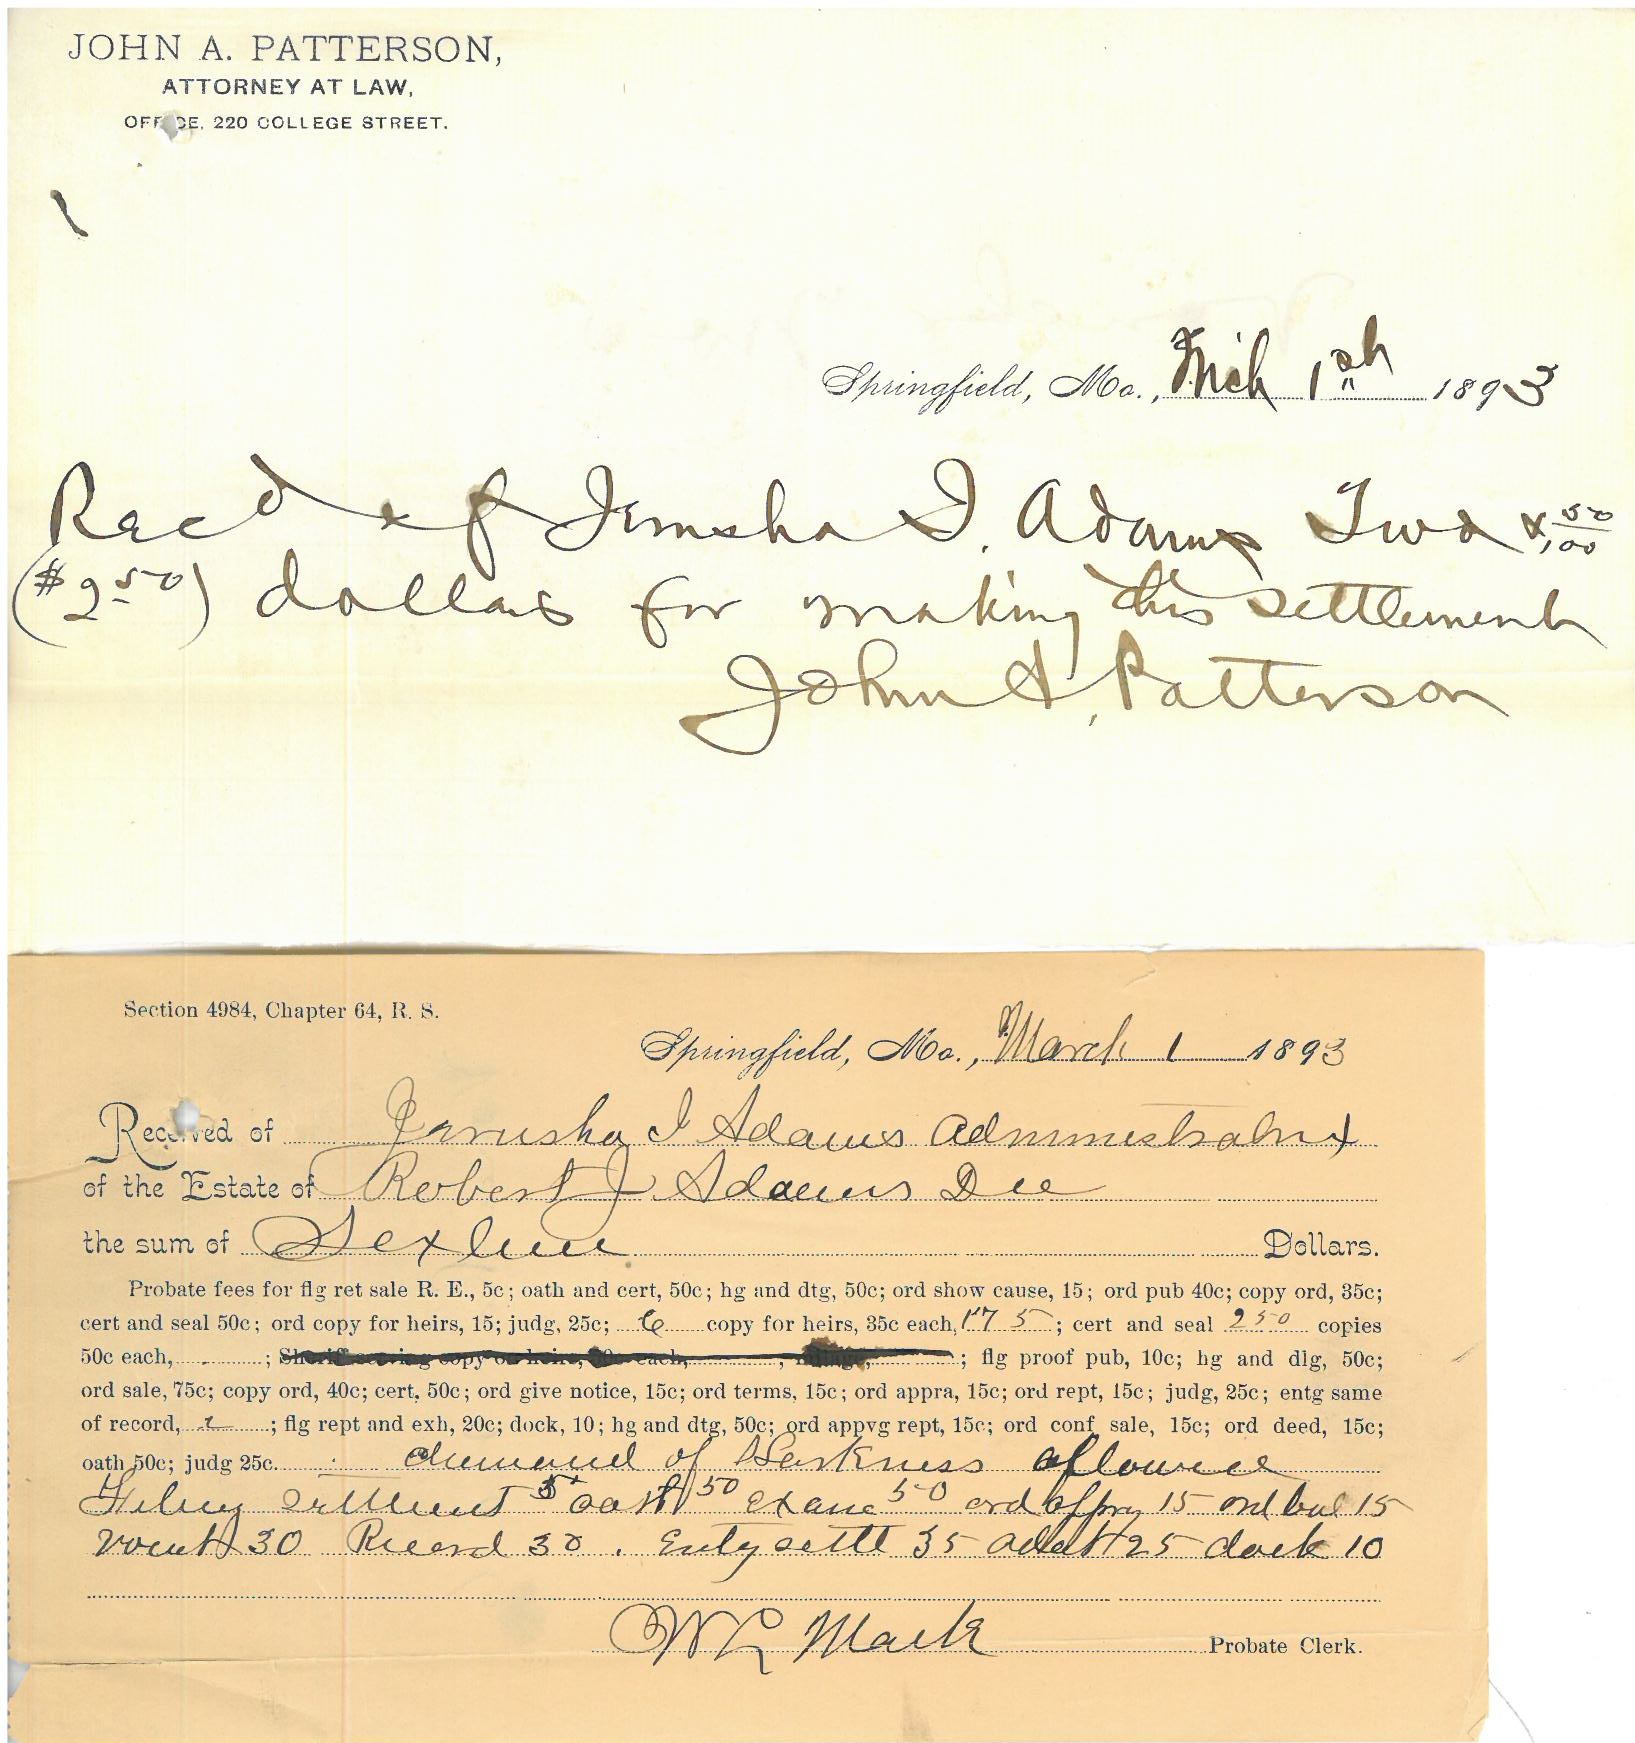 JOHN A. PATTERSON,
ATTORNEY AT LAW,
OFFICE, 220 COLLEGE STREET.
Springfield, Mo., Mch 1st 1893
Recd of Jerusha I. Adams Two & 50/100
($2.50) dollars for making this settlement
John A. Patterson
Section 4984, Chapter 64, R. S.
Springfield, Mo., March 1 1893
Received of Jerusha I Adams Administratrix
of the Estate of Robert J Adams Dec
the sum of Dollars.
Probate fees for flg ret sale R. E., 5c; oath and cert, 50c; hg and dtg, 50c; ord show cause, 15; ord pub 40c; copy ord, 35c;
cert and seal 50c; ord copy for heirs, 15; judg, 25c; 6 copy for heirs, 35c each, 175; cert and seal 250 copies
50c each, ; Sheriff serving copy on heirs, 50c each, ; mileage, ; flg proof pub, 10c; hg and dlg, 50c;
ord sale, 75c; copy ord, 40c; cert, 50c; ord give notice, 15c; ord terms, 15c; ord appra, 15c; ord rept, 15c; judg, 25c; entg same
of record, ; flg rept and exh, 20c; dock, 10; hg and dtg, 50c; ord appvg rept, 15c; ord conf sale, 15c; ord deed, 15c;
oath 50c; judg 25c. demand of Harkness allowed
Filing settlment 5 oath 50 exam 50 ord appr 15 ord bal 15
vouch 30 Record 30. Enty settl 35 25 dock 10
W L Mack Probate Clerk.